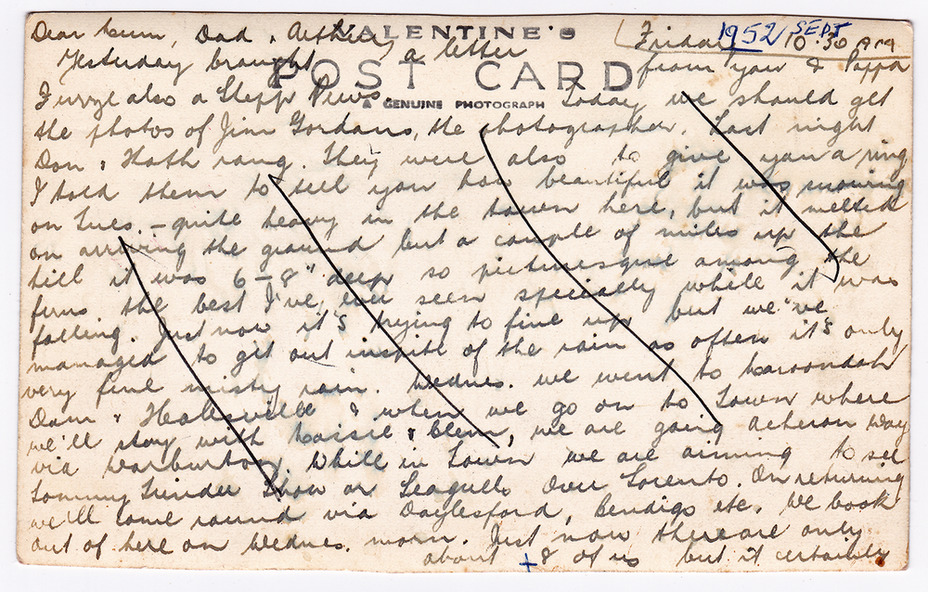 VALENTINE'S
POST CARD
A GENUINE PHOTOGRAPH
1952 SEPT
Friday 10.30 am
Dear Mum, Dad & Arthur,
Yesterday brought a letter from you &
also a Today we should get
the photos of Jim Gordans, the photographer. Last night
Don & Kath rang. They were also to give you a ring
I told them to tell you how beautiful it was snowing
on Tues. – quite heavy in the town here, but it melted
on arriving the ground but a couple of miles up the
hill it was 6–8" deep so picturesque among the
firns the best I've ever seen specially while it was
falling. Just now it's trying to fine up but we've
managed to get out inspite of the rain as often it's only
very fine misty rain. Wednes. we went to Maroondah
Dam & Healesville & when we go on to Town where
we'll stay with & , we are going Acheron Way
via Warburton. While in Town we are aiming to see
Tommy Trinder Show or Seagulls Over Sorento. On returning
we'll come round via Daylesford, Bendigo etc. We book
out of here on Wednes. morn. Just now there are only
about + 8 of us but it certainly